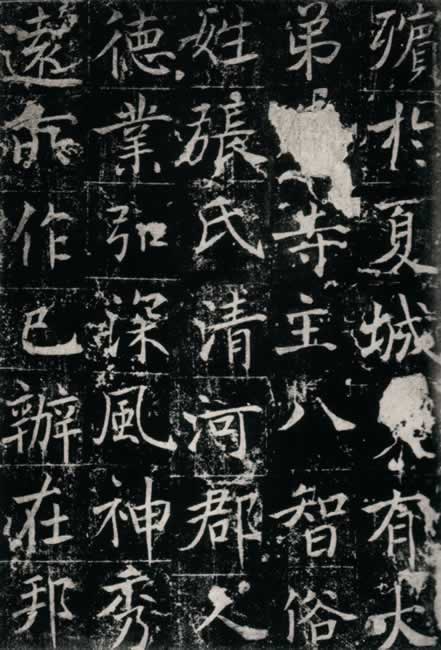 於夏城有大
弟寺主八智俗
姓張氏清河郡人
德業弘深風神秀
遠所作已辦在邦